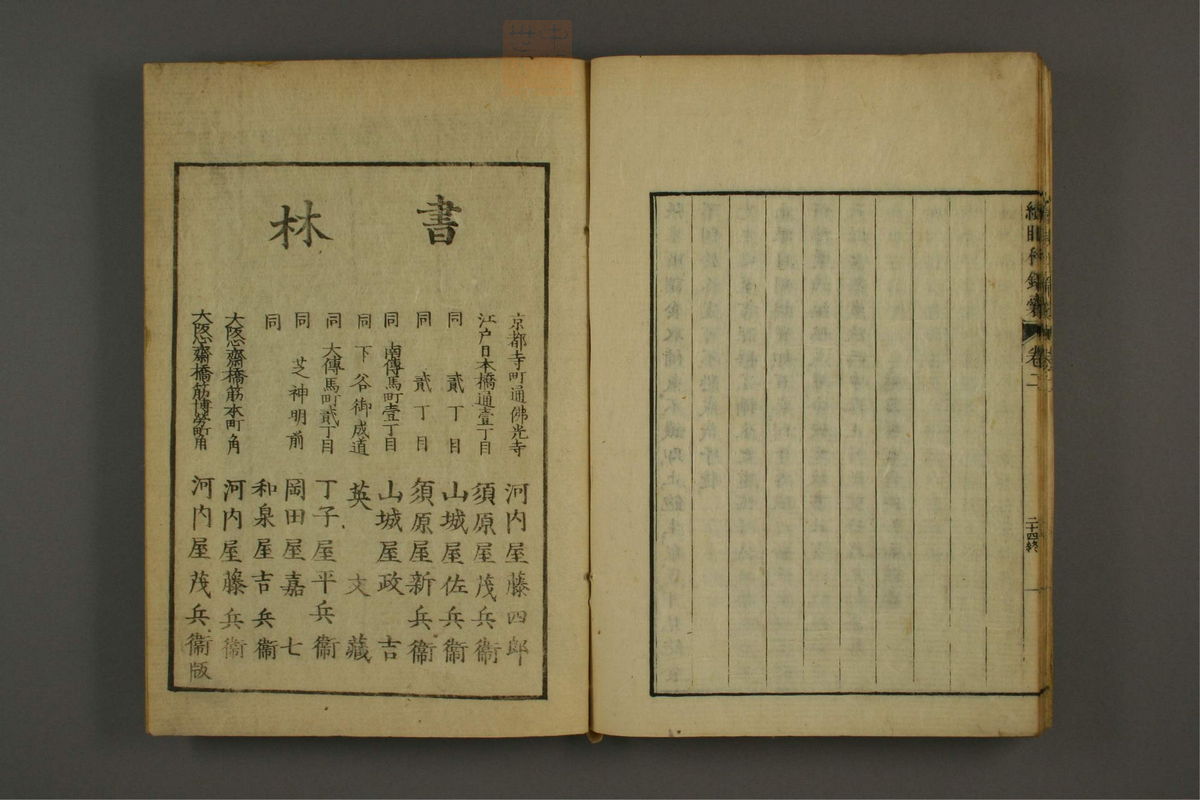 續眼科錦囊
卷二
二十四終
書林
京都寺町通佛光寺 河内屋藤四郎
江戸日本橋通壹丁目 須原屋茂兵衞
同 貳丁目 山城屋佐兵衞
同 貳丁目 須原屋新兵衞
同 南傳馬町壹丁目 山城屋政吉
同 下谷御成道 英文藏
同 大傳馬町貳丁目 丁子屋平兵衞
同 芝神明前 岡田屋嘉七
同 和泉屋吉兵衞
大阪心齋橋筋本町角 河内屋藤兵衞
大阪心齋橋筋博勞町角 河内屋茂兵衞版